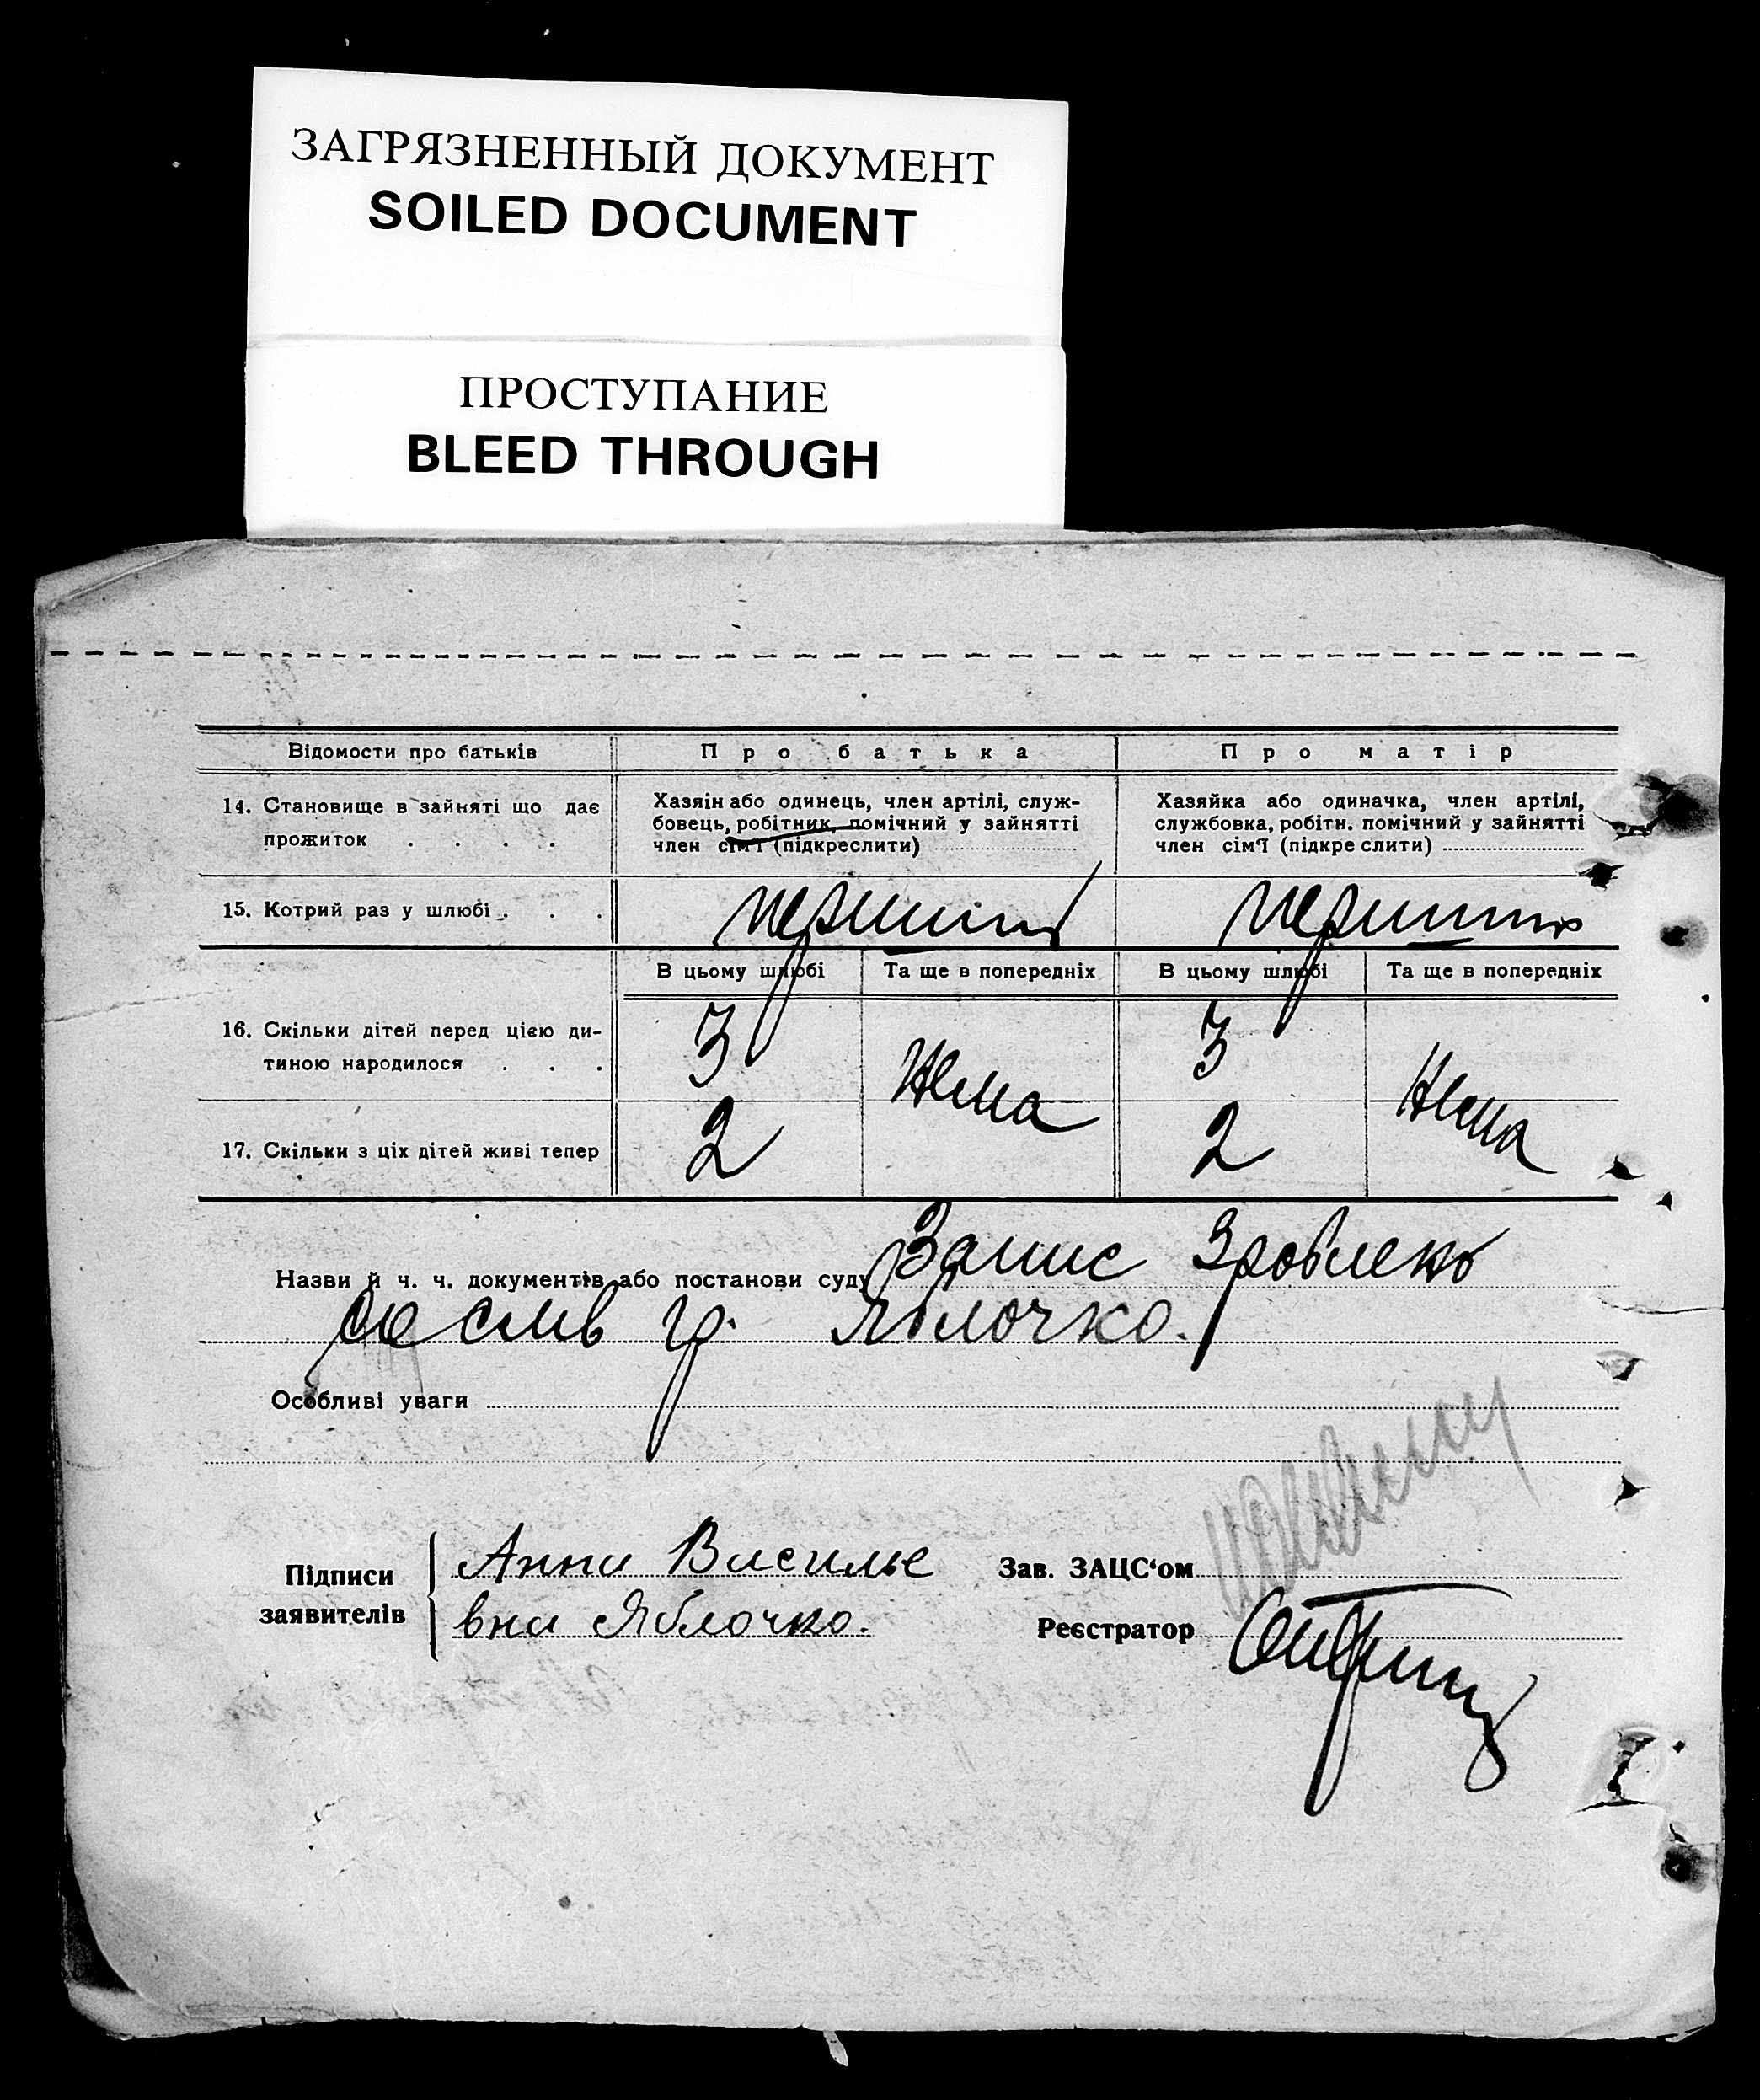 ЗАГРЯЗНЕННЫЙ ДОКУМЕНТ
SOILED DOCUMENT
ПРОСТУПАНИЕ
BLEED THROUGH
Відомости про батьків
Про батька
Про матір
14. Становище в зайняті що дає
прожиток . . . .
Хазяїн або одинець, член артілі, служ-
бовець, робітник, помічний у зайнятті
член сім'ї (підкреслити)
Хазяйка або одиначка, член артілі,
службовка, робітн. помічний у зайнятті
член сім'ї (підкреслити)
15. Котрий раз у шлюбі . . .
перший
першии
В цьому шлюбі
Та ще в попередніх
В цьому шлюбі
Та ще в попередніх
16. Скільки дітей перед цією ди-
тиною народилося . . .
3
Нема
3
Нема
17. Скільки з ціх дітей живі тепер
2
2
Назви й ч. ч. документів або постанови суду Запис зроблено
со слів гр. Яблочко.
Особливі уваги
Підписи
заявителів
Анна Василье
вна Яблочко.
Зав. ЗАЦС'ом
Реєстратор